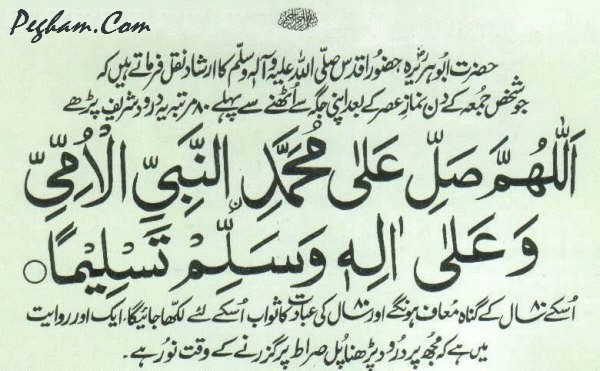 Pegham.Com
حضرت ابو ہریرہؓ حضور اقدس صلی اللہ علیہ وآلہٖ وسلم کا ارشاد نقل فرماتے ہیں کہ
جو شخص جمعہ کے دن نماز عصر کے بعد اپنی جگہ سے اُٹھنے سے پہلے ۸۰ مرتبہ یہ درود شریف پڑھے
اَللّٰهُمَّ صَلِّ عَلٰى مُحَمَّدِ ِۨالنَّبِيِّ الْاُمِّيِّ
وَعَلٰى اٰلِهٖ وَسَلِّمْ تَسْلِيْمًا ○
اُسکے ۸۰ سال کے گناہ معاف ہونگے اور ۸۰ سال کی عبادت کا ثواب اُسکے لئے لکھا جائیگا، ایک اور روایت
میں ہے کہ مجھ پر درود پڑھنا پل صراط پر گزرنے کے وقت نور ہے۔